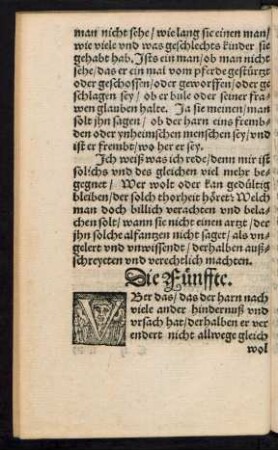 man nicht sehe / wie lang sie einen man /
wie viele vnd was geschlechts kinder sie
gehabt hab. Ists ein man / ob man nicht
sehe / das er ein mal vom pferde gestürtzt
oder geschossen / oder geworffen / oder ge
schlagen sey / ob er bule oder seiner fra-
wen glauben halte. Ja sie meinen / man
solt jhn sagen / ob der harn eins fremb-
den oder ynheimschen menschen sey / vnd
ist er frembt / wo her er sey.
Ich weiß was ich rede / denn mir ist
solichs vnd des gleichen viel mehr be-
gegnet / Wer wolt oder kan gedültig
bleiben / der solch thorheit höret: Welch
man doch billich verachten vnd bela-
chen solt / wann sie nicht einen artzt / der
jhn solche alfantzen nicht saget / als vn-
gelert vnd vnwissendt / derhalben auß-
schreyeten vnd verechtlich machten.
Die Fünffte.
VBer das / das der harn nach
viele ander hindernuß vnd
vrsach hat / derhalben er ver
endert nicht allwege gleich
wol